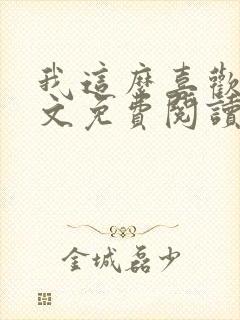 我這麼喜歡
文免費閱讀
金城磊少